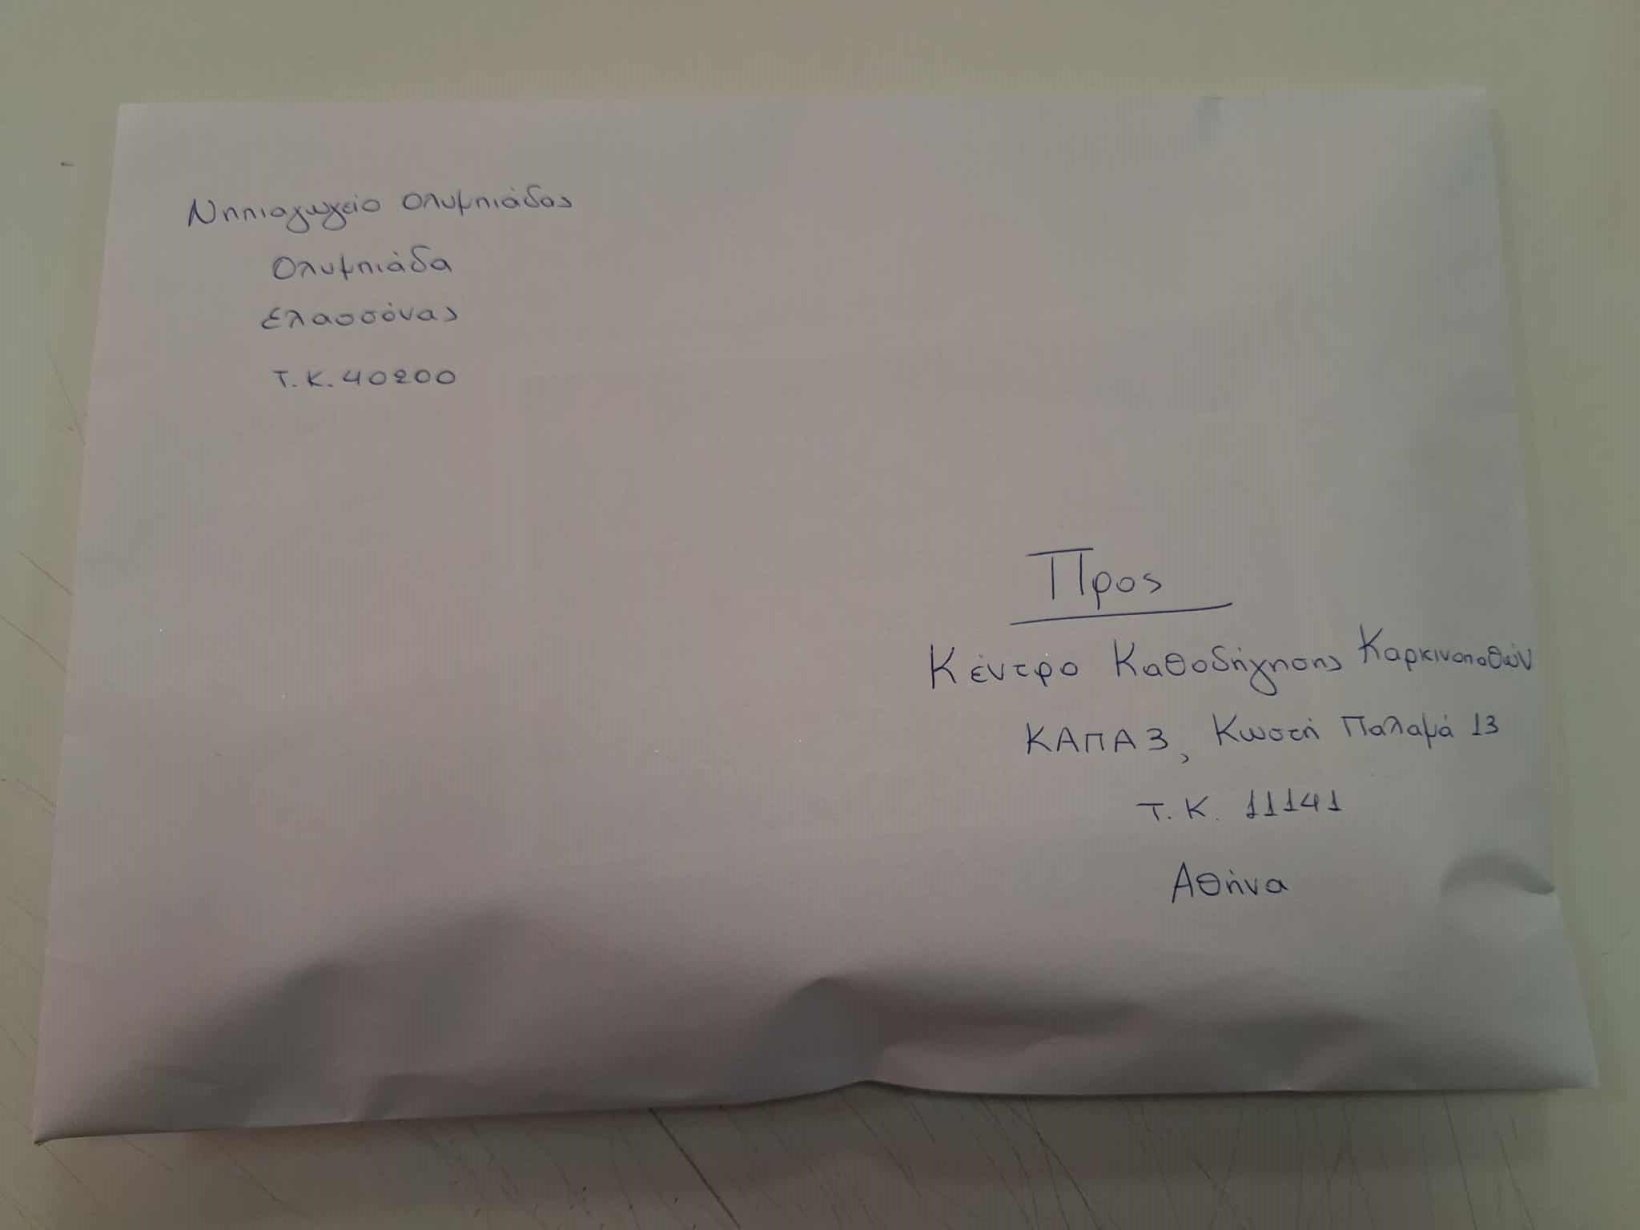 Νηπιαγωγείο Ολυμπιάδας
Ολυμπιάδα
Ελασσόνας
Τ.Κ. 40200
Προς
Κέντρο Καθοδήγησης Καρκινοπαθών
ΚΑΠΑ3, Κωστή Παλαμά 13
Τ.Κ. 11141
Αθήνα